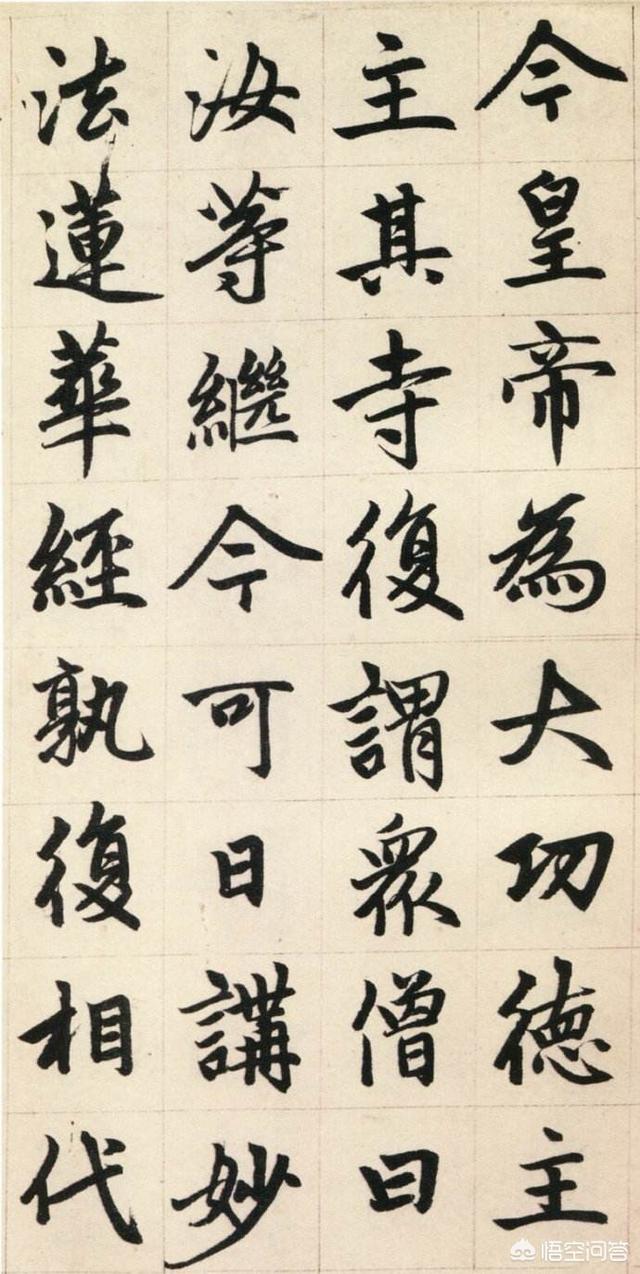 今皇帝為大功德主
主其寺復謂眾僧曰
汝等繼今可日講妙
法蓮華經孰復相代
悟空问答